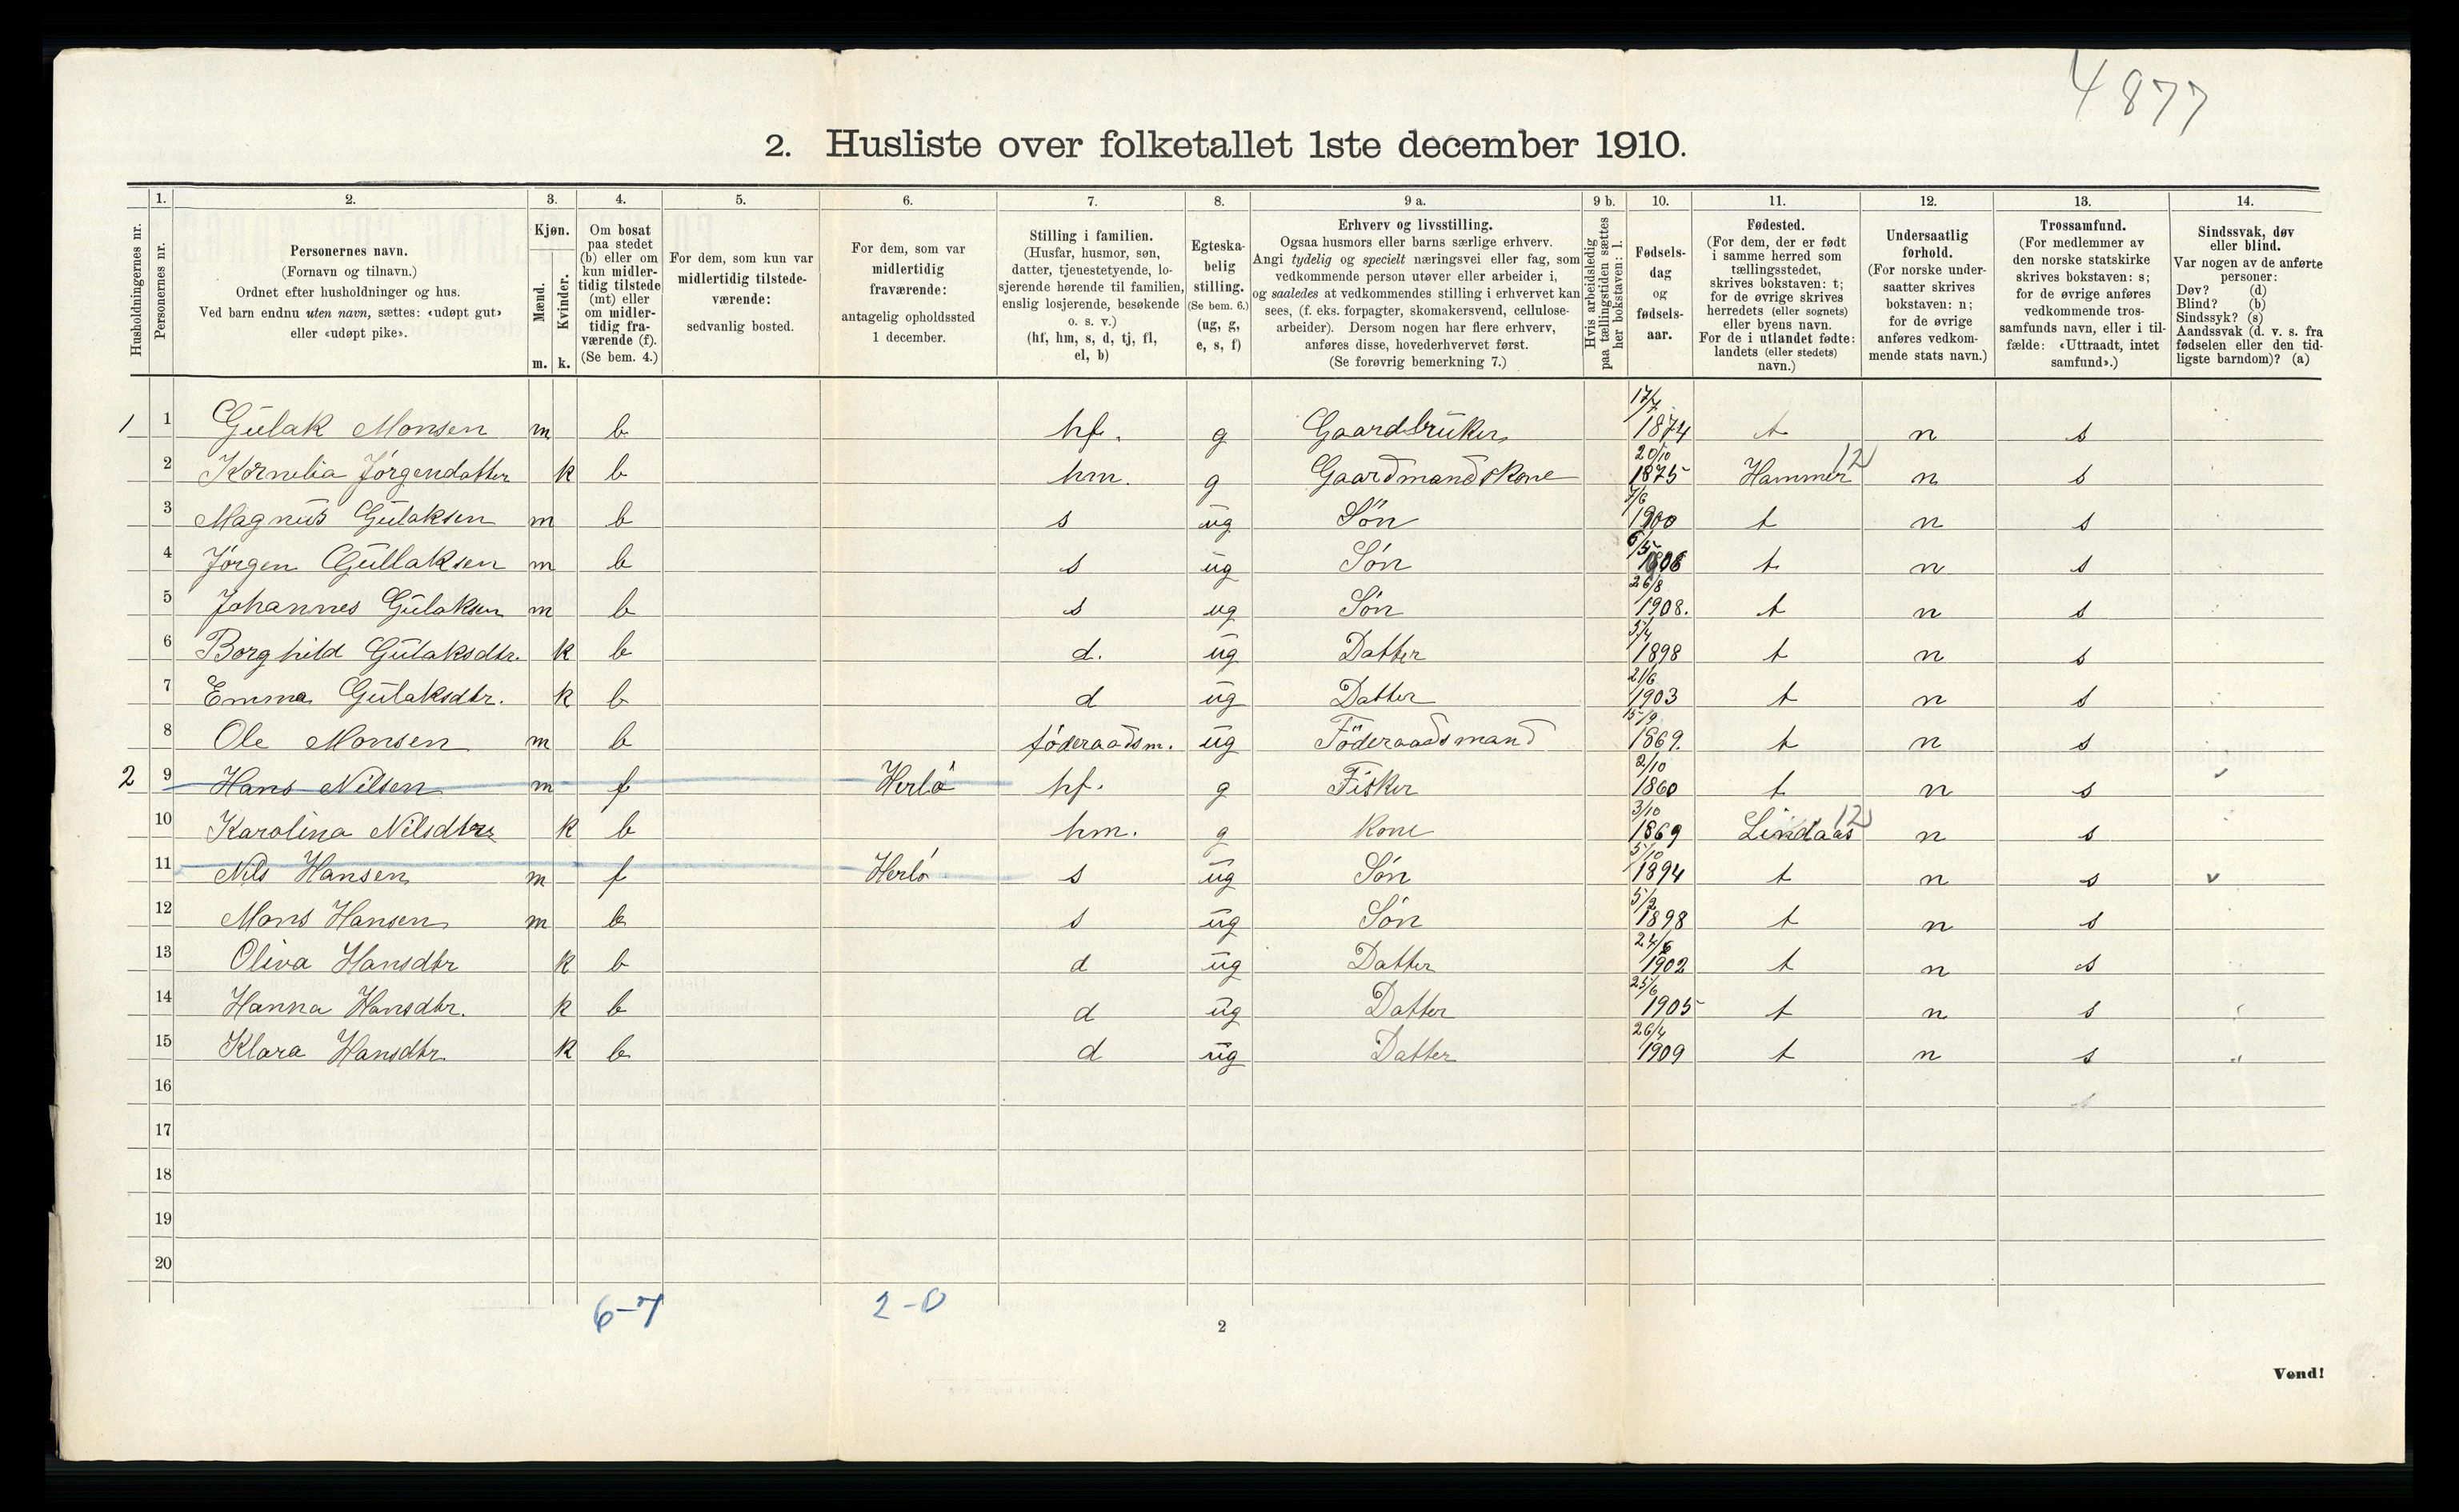 4877
2. Husliste over folketallet 1ste december 1910.
Husholdningernes nr.
1.
Personernes nr.
2.
Personernes navn.
(Fornavn og tilnavn.)
Ordnet efter husholdninger og hus.
Ved barn endnu uten navn, sættes: «udøpt gut»
eller «udøpt pike».
3.
Kjøn.
Mænd.
Kvinder.
m. k.
4.
Om bosat
paa stedet
(b) eller om
kun midler-
tidig tilstede
(mt) eller
om midler-
tidig fra-
værende (f).
(Se bem. 4.)
5.
For dem, som kun var
midlertidig tilstede-
værende:
sedvanlig bosted.
6.
For dem, som var
midlertidig
fraværende:
antagelig opholdssted
1 december.
7.
Stilling i familien.
(Husfar, husmor, søn,
datter, tjenestetyende, lo-
sjerende hørende til familien,
enslig losjerende, besøkende
o. s. v.)
(hf, hm, s, d, tj, fl,
el, b)
8.
Egteska-
belig
stilling.
(Se bem. 6.)
(ug, g,
e, s, f)
9 a.
Erhverv og livsstilling.
Ogsaa husmors eller barns særlige erhverv.
Angi tydelig og specielt næringsvei eller fag, som
vedkommende person utøver eller arbeider i,
og saaledes at vedkommendes stilling i erhvervet kan
sees, (f. eks. forpagter, skomakersvend, cellulose-
arbeider). Dersom nogen har flere erhverv,
anføres disse, hovederhvervet først.
(Se forøvrig bemerkning 7.)
9 b.
Hvis arbeidsledig
paa tællingstiden sættes
her bokstaven: l.
10.
Fødsels-
dag
og
fødsels-
aar.
11.
Fødested.
(For dem, der er født
i samme herred som
tællingsstedet,
skrives bokstaven: t;
for de øvrige skrives
herredets (eller sognets)
eller byens navn.
For de i utlandet fødte:
landets (eller stedets)
navn.)
12.
Undersaatlig
forhold.
(For norske under-
saatter skrives
bokstaven: n;
for de øvrige
anføres vedkom-
mende stats navn.)
13.
Trossamfund.
(For medlemmer av
den norske statskirke
skrives bokstaven: s;
for de øvrige anføres
vedkommende tros-
samfunds navn, eller i til-
fælde: «Uttraadt, intet
samfund».)
14.
Sindssvak, døv
eller blind.
Var nogen av de anførte
personer:
Døv? (d)
Blind? (b)
Sindssyk? (s)
Aandssvak (d. v. s. fra
fødselen eller den tid-
ligste barndom)? (a)
1 1 Gulak Monsen m b hf. g Gaardbruker 17/7 1874 t n s
2 Kornelia Jörgendatter k b hm. g Gaardmandskone 20/10 1875 Hammer 12 n s
3 Magnus Gulaksen m b s ug Sön 7/6 1900 t n s
4 Jörgen Gullaksen m b s ug Sön 6/5 1906 t n s
5 Johannes Gulaksen m b s ug Sön 26/8 1908. t n s
6 Borghild Gulaksdtr. k b d. ug Datter 5/4 1898 t n s
7 Emma Gulaksdtr. k b d ug Datter 21/6 1903 t n s
8 Ole Monsen m b föderaadsm. ug Föderaadsmand 15/9 1869. t n s
2 9 Hans Nilsen m f Herlö hf. g Fisker 2/10 1860 t n s
10 Karolina Nilsdtr k b hm. g Kone 3/10 1869 Lindaas 12 n s
11 Nils Hansen m f Herlö s ug Sön 5/10 1894 t n s
12 Mons Hansen m b s ug Sön 5/2 1898 t n s
13 Oliva Hansdtr k b d ug Datter 24/6 1902 t n s
14 Hanna Hansdtr. k b d ug Datter 25/6 1905 t n s
15 Klara Hansdtr. k b d ug Datter 26/4 1909 t n s
16
17
18
19
20
6-7 2-0
2
Vend!